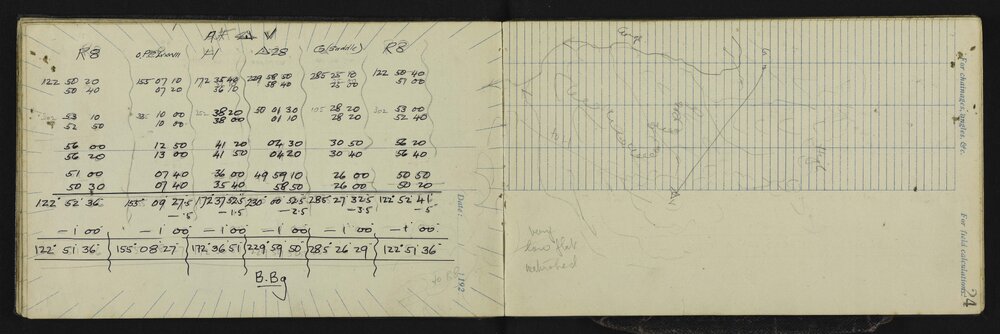 A# Δ V
R8 A1 Δ28 G (Saddle) R8
122 50 30 155 07 10 172 35 40 229 58 50 285 25 10 122 50 40
50 40 07 20 36 10 58 40 25 00 51 00
302 53 10 10 00 352 38 20 50 01 30 105 28 20 302 53 00
52 50 10 00 38 00 01 10 28 20 52 40
56 00 12 50 41 20 04 30 30 50 56 20
56 20 13 00 41 50 04 20 30 40 56 40
51 00 07 40 36 00 49 59 10 26 00 50 50
50 30 07 40 35 40 58 50 26 00 50 20
122° 52' 36" 155° 09' 27.5 172° 37' 52.5 230° 00' 52.5 285° 27' 32.5 122° 52' 41"
-.5 -1.5 -2.5 -3.5 -5
-1' 00" -1' 00" -1' 00" -1' 00" -1' 00" -1' 00"
122° 51' 36" 155° 08' 27" 172° 36' 51" 229° 59' 50" 285° 26' 29" 122° 51' 36"
B.Bg
Date: 1192
very
low flat
watershed
High
For chainages, angles, &c.
For field calculations.
24